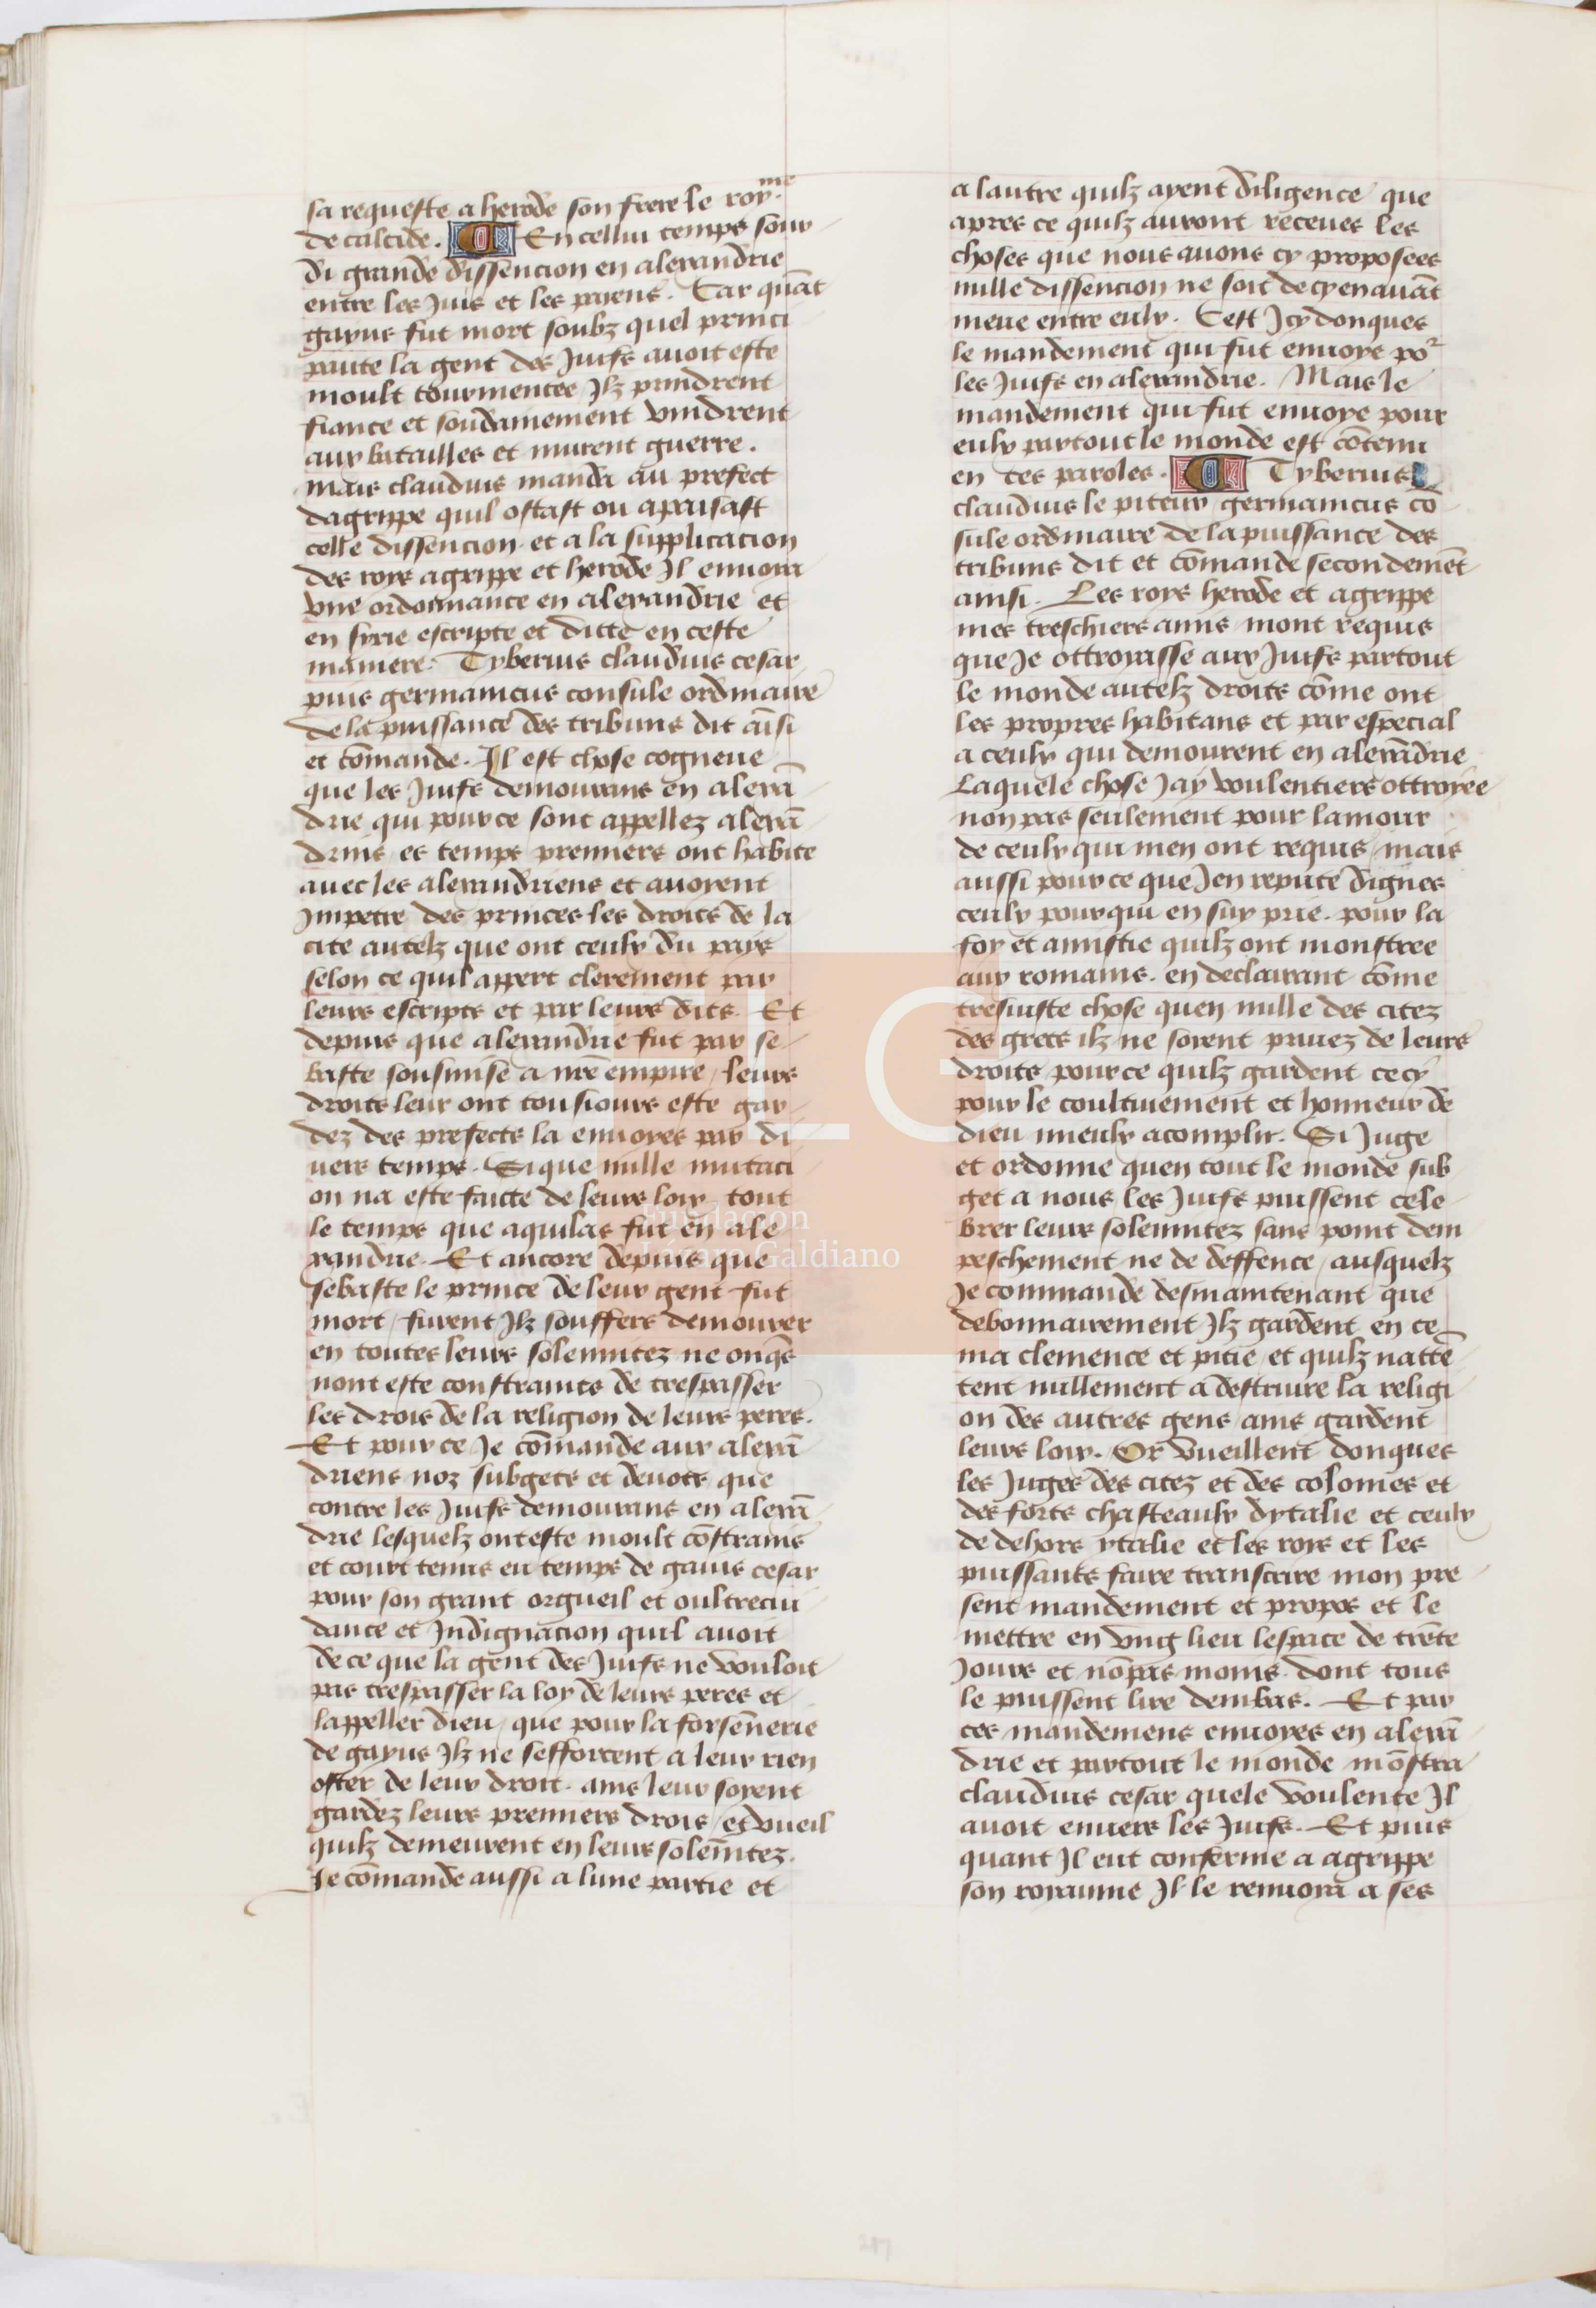 sa requeste a herode son frere le roy.me
de calcide. En cellui temps sour
di grande dissencion en alexandrie
entre les Juis et les payens. Car quāt
gayus fut mort soubz quel princi
paute la gent des Juifs auoit este
moult tourmentee Ilz prindrent
fiance et soudainement vindrent
aux batailles et murent guerre.
mais claudius manda au prefect
dagrippe quil ostast ou apaisast
celle dissencion. et a la supplication
des roys agrippe et herode Il enuoia
vne ordonnance en alexandrie et
en syrie escripte et ditte en ceste
maniere. Tyberius claudius cesar
puis germanicus consule ordinaire
de la puissance des tribuns dit aīsi
et cōmande. Il est chose cogneue
que les Juifs demourans en alexā
drie qui pour ce sont appellez alexā
drins es temps premiers ont habite
auec les alexandriens et auoyent
Impetre des princes les droits de la
cite autelz que ont ceulx du pays
selon ce quil appert clerement par
leurs escripts et par leurs dits. Et
depuis que alexandrie fut par se
baste sousmise a nr̄e empire / leurs
droits leur ont tousiours este gar
dez des prefects la enuoyes par di
uers temps. Si que nulle mutaci
on na este faicte de leurs loix tout
le temps que aquilas fut en ale
xandrie. Et ancore depuis que
sebaste le prince de leur gent fut
mort / furent Ilz souffers demourer
en toutes leurs solemnitez ne onq̄s
nont este constrains de trespasser
les drois de la religion de leurs peres.
Et pour ce Je cōmande aux alexā
driens noz subgets et deuots que
contre les Juifs demourans en alexā
drie lesquelz ont este moult cōstrains
et court tenus eu temps de gaius cesar
pour son grant orgueil et oultrecui
dance et Indignacion quil auoit
de ce que la gent des Juifs ne vouloit
pas trespasser la loy de leurs peres et
lappeller dieu / que pour la forsēnerie
de gayus Ilz ne sefforcent a leur rien
oster de leur droit. ains leur soyent
gardez leurs premiers drois / et vueil
quilz demeurent en leurs solēnitez.
Je cōmande aussi a lune partie et
a lautre quilz ayent diligence que
apres ce quilz auront receues les
choses que nous auons cy proposees
nulle dissencion ne soit de cy en auāt
meue entre eulx. Cest Icy donques
le mandement qui fut enuoye por
les Juifs en alexandrie. Mais le
mandement qui fut enuoye pour
eulx partout le monde est cōtenu
en ces paroles. Tyberius
claudius le piteux germanicus cō
sule ordinaire de la puissance des
tribuns dit et cōmande secondemēt
ainsi. Les roys herode et agrippe
mes treschiers amis mont requis
que Je ottroyasse aux Juifs partout
le monde autelz droits cōme ont
les propres habitans et par especial
a ceulx qui demourent en alexādrie
Laquele chose Jay voulentiers ottroyee
non pas seulement pour lamour
de ceulx qui men ont requis / mais
aussi pour ce que Jen repute dignes
ceulx pour qui en suy prie. pour la
foy et amistie quilz ont monstree
aux romains. en declairant cōme
tresiuste chose quen nulle des citez
des grecs ilz ne soyent priuez de leurs
droits pour ce quilz gardent cecy
pour le coultiuement et honneur de
dieu mieulx acomplir. Si Juge
et ordonne quen tout le monde sub
get a nous les Juifs puissent cele
brer leurs solemnitez sans point dem
peschement ne de deffence / ausquelz
Je commande desmaintenant que
debonnairement Ilz gardent en ce
ma clemence et pitie / et quilz nattē
tent nullement a destruire la religi
on des autres gens ains gardent
leurs loix. Or vueillent donques
les Juges des citez et des colonies et
des forts chasteaulx dytalie et ceulx
de dehors ytalie et les roys et les
puissants faire transcrire mon pre
sent mandement et propos et le
mettre en vng lieu lespace de trēte
Jours et nō pas moins. dont tous
le puissent lire dembas. Et par
ces mandemens enuoyes en alexā
drie et partout le monde mōstra
claudius cesar quele voulente Il
auoit enuers les Juifs. Et puis
quant Il eut conferme a agrippe
son royaume Il le renuoya a ses
Fundación
Lázaro Galdiano
FLG
217